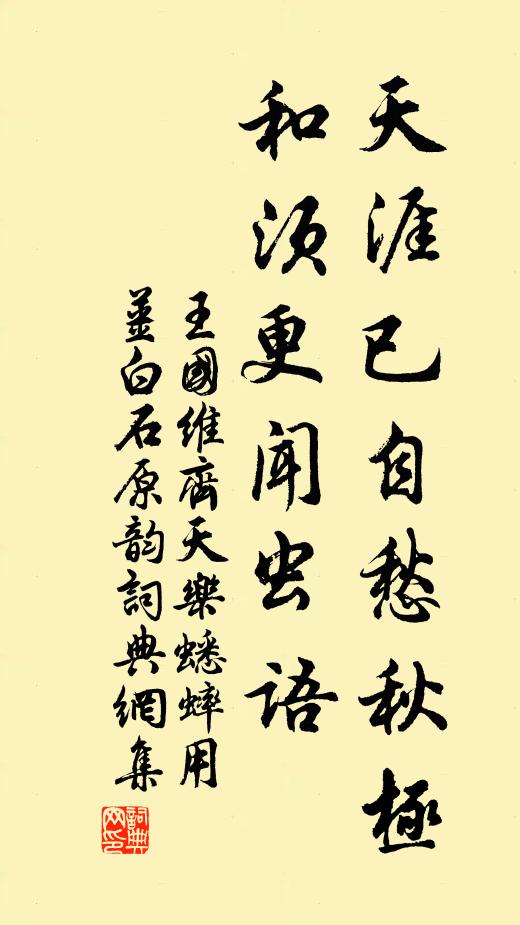 天涯已自愁秋極
和須更聞虫語
王國維齊天樂蟋蟀用
薑白石原韵詞典網集
詞典网印